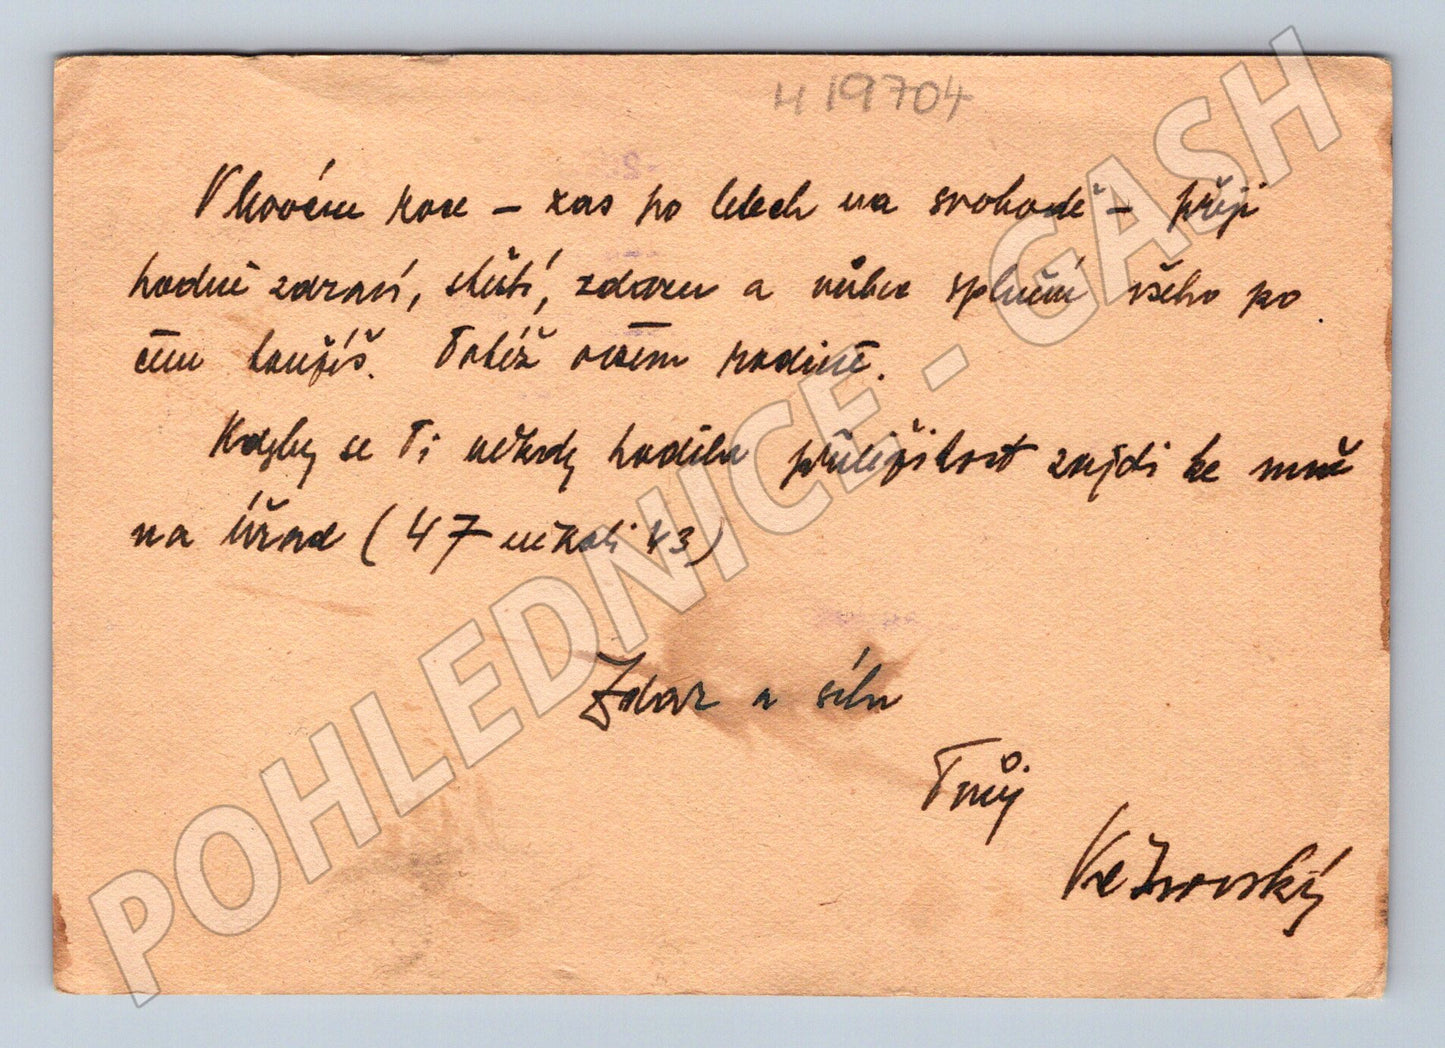 H 19704
V novém roce – zas po letech na svobodě – přeji
hodně zdraví, štěstí, zdaru a vůbec splnění všeho po
čem toužíš. Totéž všem rodině.
Kdyby se Ti někdy hodila příležitost zajdi ke mně
na úřad (47 nekoli 43)
Zdar a sílu
Tvůj
POHLEDNICE - GASH